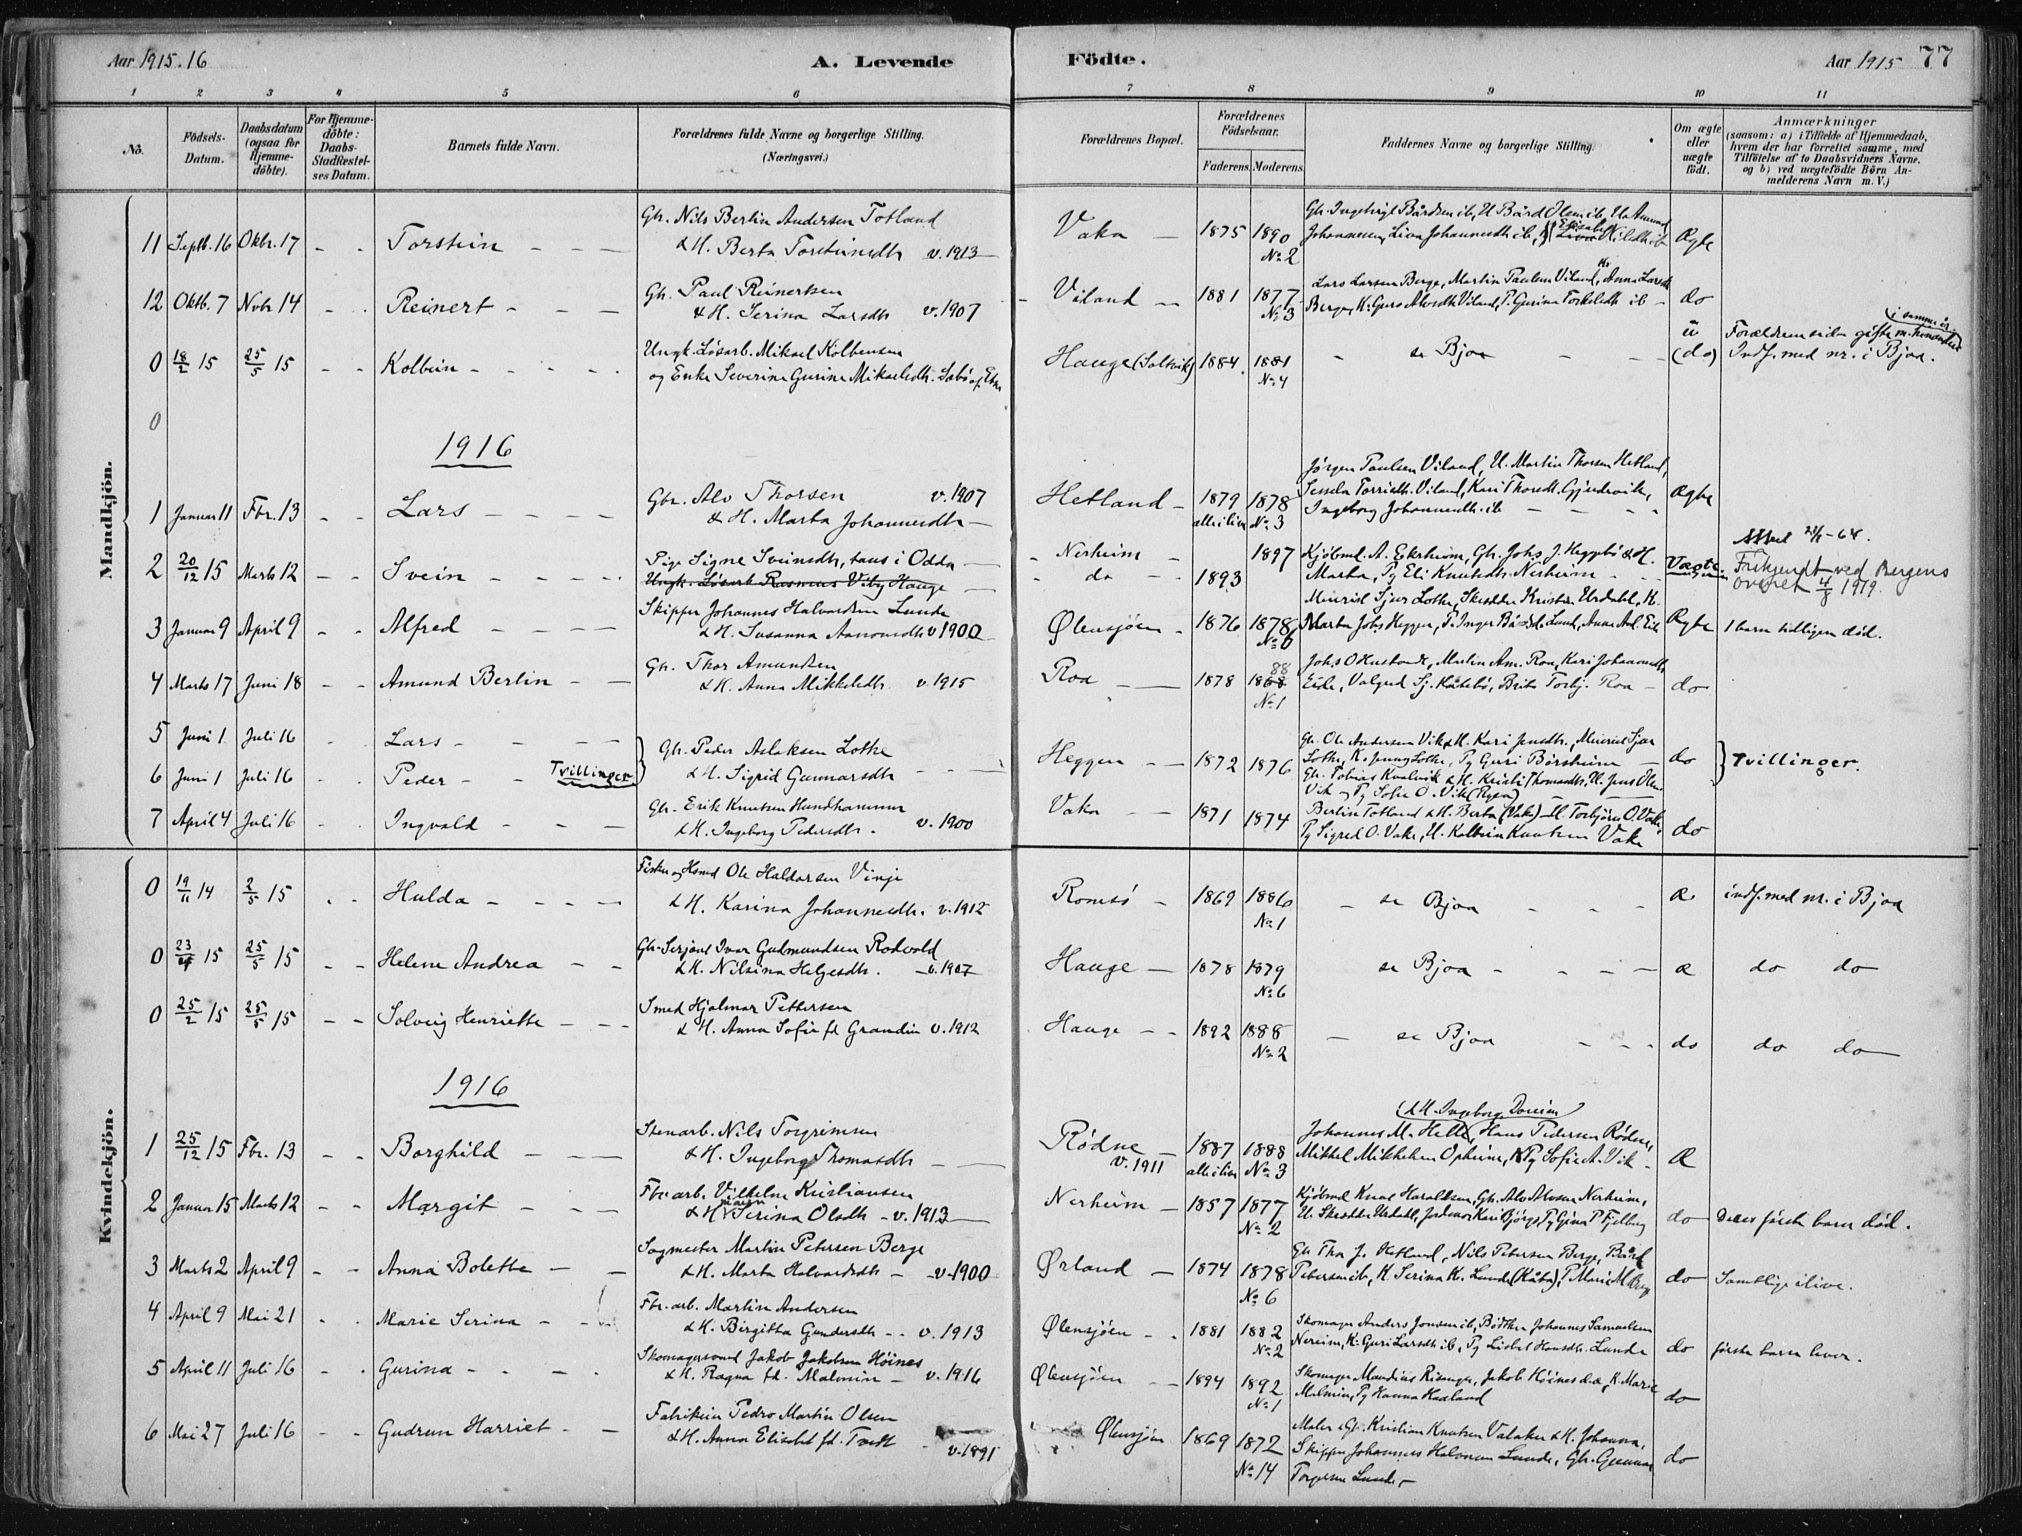 Aar 1915.16
A. Levende
Födte.
Aar 1915
77
1 2 3 4 5 6 7 8 9 10 11
No.
Födsels-Datum.
Daabsdatum (ogsaa for Hjemme-döbte).
For Hjemme-döbte: Daabs-Stadfæstel-ses Datum.
Barnets fulde Navn.
Forældrenes fulde Navne og borgerlige Stilling. (Næringsvei.)
Forældrenes Bopæl.
Forældrenes Födselsaar.
Faderens. Moderens.
Faddernes Navne og borgerlige Stilling.
Om ægte eller uægte födt.
Anmærkninger (saasom: a) i Tilfælde af Hjemmedaab, hvem der har forrettet samme, med Tilföielse af to Daabsvidners Navne. og b) ved uægtefödte Börn An-melderens Navn m. V.)
Mandkjön.
11 Septb. 16 Oktbr. 17 - - Torstein - - - Gbr. Nils Berlin Andersen Totland
& H. Berta Torsteinsdtr v. 1913 Vaka - 1875 1890 No 2 Ægte
12 Oktb. 7 Novbr 14 - - Reinert - - - Gbr. Paul Reinertsen
& H. Serina Larsdtr v. 1907 Viland - 1881 1877 No 3 Lars Larsen Berge, Martin Paulsen Viland, Anna Larsdtr
Berge, K. Guro Alvsdtr Viland, P. Gurina Torkelsdtr ib - do
0 18/2 15 25/5 15 - - Kolbein - - - - Ungk. Løsarb. Mikael Kolbensen
og Enke Severine Gurine Mikaelsdtr. Hauge (Solvik) 1884 1881 No 4 - se Bjoa - - - u (do) Forældrene siden gifte m. hinanden i samme år
Indf. med nr. i Bjoa.
0
1916
1 Januar 11 Fbr. 13 - - Lars - - - - Gbr. Alv Thorsen v. 1907
& H. Marta Johannesdtr - Hetland - 1879 alle ilive 1878 No 3 Jörgen Paulsen Viland, U. Martin Thorsen Hetland,
Sessela Torrisdtr. Viland, Kari Thorsdtr. Gjerdevik,
Ingeborg Johannesdtr. ib - - - Ægte
2 20/12 15 Marts 12 - - Svein - - - - Pige Signe Sveinsdtr, taus i Odda - Nerheim - 1897
Ungk. Løsarb Rasmus Vity Hauge do - 1893 Kjöbmd. A. Ekrheim, Gbr. Johs. J. Heggebö & H.
Marta, Pg Eli Knutsdtr. Nerheim - - Uægte Attest 24/1 - 64.
Frikjendt ved Bergens
overret 4/8 1919.
3 Januar 9 April 9 - - Alfred - - - - Skipper Johannes Halvardsen Lunde
& H. Susanna Aanonsdtr v 1900 Ølensjöen - 1876 1878 No 6 Ægte 1 barn tidligere død.
4 Marts 17 Juni 18 - - Amund Berlin - - Gbr. Thor Amundsen
& H. Anna Mikkelsdtr v. 1915 Roa - 1878 1868 88 No 1 do
5 Juni 1. Juli 16 - - Lars - - - -
6 Juni 1 Juli 16 - - Peder - - Tvillinger Gbr. Peder Aslaksen Lothe
& H. Sigrid Gunnarsdtr - - - Heggen - - 1872 1876 Gbr. Ole Andersen Vik & H. Kari Jensdtr., Minerist Sjur
Lothe, K. Jenny Lothe, Pg Guri Börsheim -
Gbr. Tobias Kvalvik & H. Kristi Thomasdtr, U. Jens Olsen
Vik og Pg Sofie O. Vik do Tvillinger.
7 April 4 Juli 16 - - Ingvald - - - Gbr. Erik Knutsen Hundhammer
& H. Ingeborg Pedersdtr. - v. 1900 Vaka - - 1871 1874 Berlin Totland & H. Berta (Vaka) - U. Torbjörn O. Vaka,
Pg Sigrid O. Vaka, U. Kolbein Knutsen Vaka do
Kvindekjön.
0 19/11 14 2/5 15 - - Hulda - - - - Fisker og Hsmd Ole Haldorsen Vinje
& H. Karina Johannesdtr. v. 1912 Romsö - 1869 1886 No 1 - se Bjoa - - - æ indf. med nr. i Bjoa
0 23/4 15 25/5 15 - - Helene Andrea - - Gbr. Serjant Ivar Gudmundsen Rodvold
& H. Nilsina Helgesdtr. - v. 1907 Hauge - 1878 1879 No 6 se Bjoa - - - - æ do do
0 25/2 15 25/5 15 - - Solveig Henriette - - - Smed Hjalmar Pettersen
& H. Anna Sofie fd Grandin v. 1912 Hauge - - 1892 1888 No 2 - se Bjoa - - - do do do
1916
1 25/12 15 Fbr. 13 - - Borghild - - - Stenarb. Nils Torgrimsen
& H. Ingeborg Thomasdtr - Rödne - v. 1911 1887 alle ilive 1888 No 3 (& H. Ingeborg Doreim)
Johannes M. Hetle, Hans Pedersen Rödne,
Mikkel Mikkelsen Opheim, Pg Sofie A. Vik - Æ
2 Januar 15 Marts 12 - - Margit - - - Fbr. arb. Vilhelm Kristiansen
& H. Serina Olsdtr - v. 1913 Nerheim - 1857 1877 No 2 Kjöbmd Knut Haraldsen, Gbr. Alv Alvsen Nerheim, do Deres förste barn död.
3 Marts 2 April 9 - - Anna Bolette - - Sagmester Martin Petersen Berge
& H. Marta Halvardsdtr - v. 1900 Ørland - 1874 1878 No 6 Gbr Thor J. Hetland, Nils Petersen Berge, Bård
Petersen ib, K Serina K. Lunde (Kåta), P. Marie M. Berge do Samtlige ilive.
4 April 9 Mai 21 - - Marie Serina - - Fbr. arb. Martin Andersen
& H. Birgitta Gundersdtr - - v. 1913 Ølensjöen - - 1881 1882 No 2 Skomager Anders Jonsen ib, Bötker Johannes Samuelsen
Nereim, K. Guri Larsdtr ib, Pg Lisbet Hansdtr. Lunde do förste barn lever.
5 April 11 Juli 16 - - Gurina - - - - Skomagersvend Jakob Jakobsen Höines
& H. Ragna fd. Malmin - v. 1916 Ølensjöen - - 1894 1892 No 1 Skomager Mandius Risanger, Jakob Höines d.æ., K. Marie
Malmin, Pg Hanna Haaland do
6 Mai 27 Juli 16 - - Gudrun Harriet - - Fabrikeier Pedro Martin Olsen
& H. Anna Elisabet fd. Tvedt - v. 1891 Ølensjöen 1869 1872 No 14 Maler & Gbr. Kristian Knutsen Valaker & H. Johanna,
Skipper Johannes Halvorsen Lunde, Gbr. Gunnar
Torgersen Lunde - do